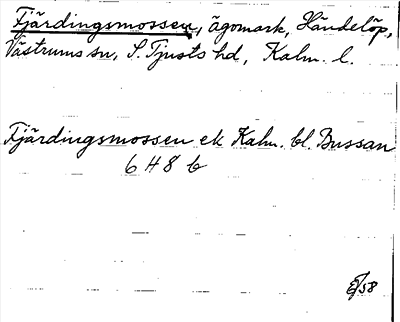 Fjärdingsmossen, ägomark, Händelöp,
Västrums sn, S. Tjusts hd, Kalm. l.
Fjärdingsmossen ek Kalm. bl. Bussan
6 H 8 b
/58